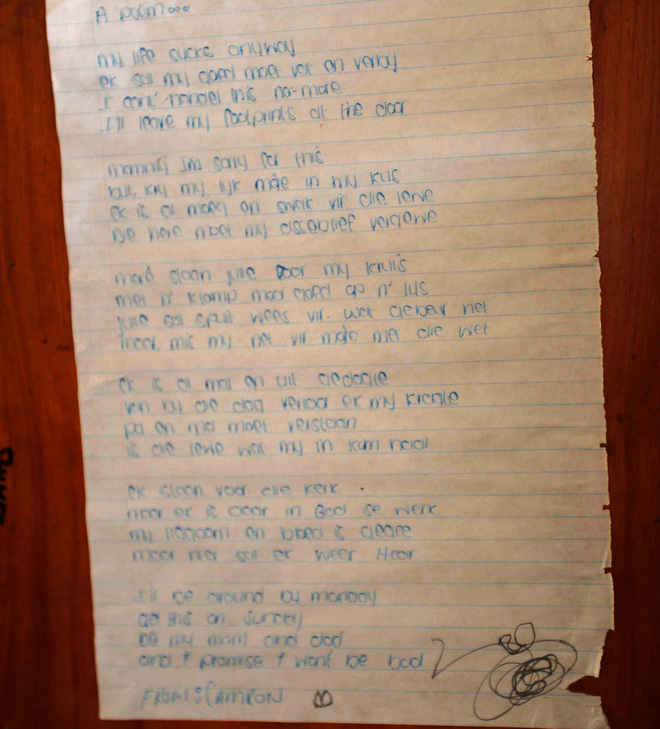 A poem...
my life sucks anyway
ek sal my goed moet vat en verby
I cant' handel this no-more
I'll leave my footprints at the door
mommy Im sorry for this
but, kry my lyk môre in my kus
ek is al moeg en swak vir die lewe
Die here moet my asseblief vergewe
môre staan julle voor my kruis
met n' klomp
julle sal spuit wees vir. wat gebeur het
maar, mis my net vir môre met die wet
ek is al en uit
en by die dag verloor ek my
pa en ma moet verstaan
is die lewe wat my in kom haal
ek staan voor die kerk
maar ek is daar in God se werk
my liggaam en is
maar net sal ek weer Hoor
I'll be around by monday
get this on Sunday
be my mom and dad
and I promise I wont be bad
FROM: